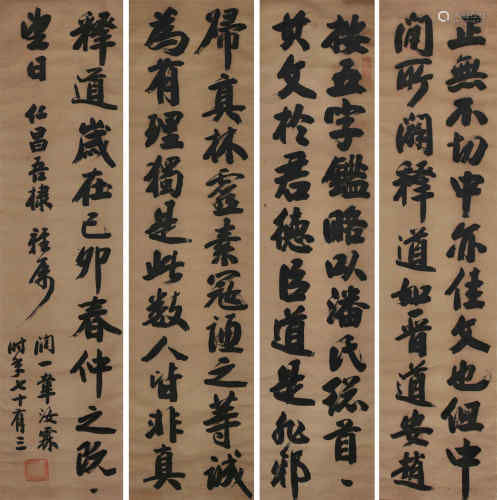 正無不切中亦佳文也但中
間所闢釋道如晉道安趙
按五字鑑略以潘氏總首、
其文於君德臣道是非邪
歸真林靈素寇謙之等誠
為有理獨是此數人皆非真
釋道歲在己卯春仲之既、
望日 仁昌吾棣 雅属
一龔汝霖
時年七十有三